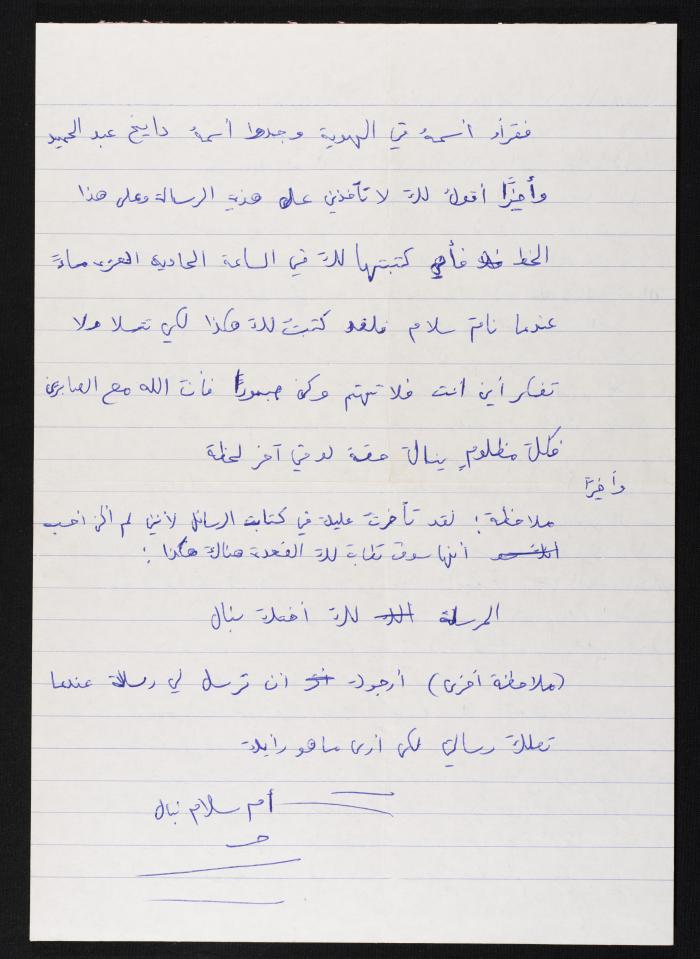 فقرأو أسمهُ في الهوية وجدوا أسمهُ دايخ عبد الحميد
وأخيرًا أقول لك لا تآخذيني على هذهِ الرسالة وعلى هذا
الخط فأني كتبتها لك في الساعة الحادية العشر مساءً
عندما نام سلام فلقد كتبت لك هكذا لكي تتسلا ولا
تفكر أين انت فلا تهتم وكن صبورًا فأن الله مع الصابرين
فكل مظلومٍ ينال حقهُ لو في آخر لحظة
وأخيرًا
ملاحظة: لقد تأخرت عليك في كتابت الرسائل لأنني لم أكن أحب
أنها سوف تطاب لك القعدة هناك هكذا:
المرسلة لك أختك نبال
(ملاحظة أخرى) أرجوك ان ترسل لي رسالة عندما
تصلك رسالتي لكي ارى ما هو رايك
أم سلام نبال